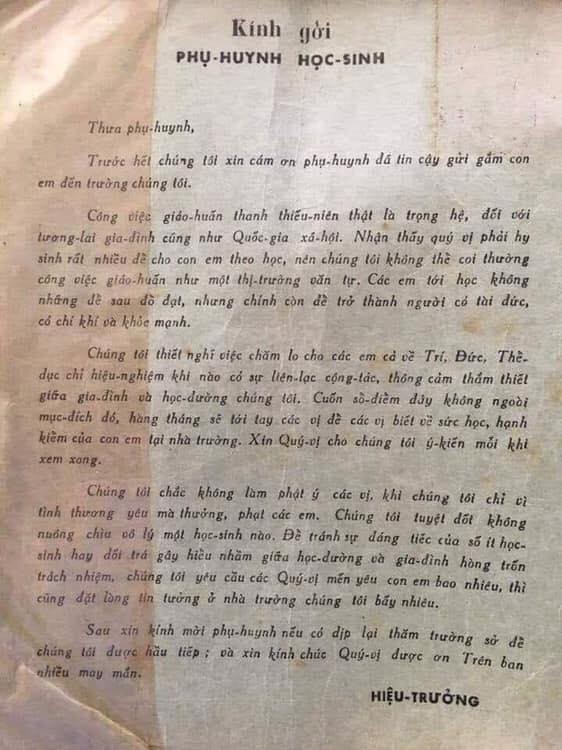 Kính gởi
PHỤ-HUYNH HỌC-SINH
Thưa phụ-huynh,
Trước hết chúng tôi xin cám ơn phụ-huynh đã tin cậy gửi gắm con
em đến trường chúng tôi.
Công việc giáo-huấn thanh thiếu-niên thật là trọng hệ, đối với
tương-lai gia-đình cũng như Quốc-gia xã-hội. Nhận thấy quý vị phải hy
sinh rất nhiều để cho con em theo học, nên chúng tôi không thể coi thường
công việc giáo-huấn như một thị-trường văn tự. Các em tới học không
những để sau đỗ đạt, nhưng chính còn để trở thành người có tài đức,
có chí khí và khỏe mạnh.
Chúng tôi thiết nghĩ việc chăm lo cho các em cả về Trí, Đức, Thể-
dục chỉ hiệu-nghiệm khi nào có sự liên-lạc cộng-tác, thông cảm thắm thiết
giữa gia-đình và học-đường chúng tôi. Cuốn sổ-điểm đây không ngoài
mục-đích đó, hàng tháng sẽ tới tay các vị để các vị biết về sức học, hạnh
kiểm của con em tại nhà trường. Xin Quý-vị cho chúng tôi ý-kiến mỗi khi
xem xong.
Chúng tôi chắc không làm phật ý các vị, khi chúng tôi chỉ vì
tình thương yêu mà thưởng, phạt các em. Chúng tôi tuyệt đối không
nuông chìu vô lý một học-sinh nào. Để tránh sự đáng tiếc của số ít học-
sinh hay dối trá gây hiểu nhầm giữa học-đường và gia-đình hòng trốn
trách nhiệm, chúng tôi yêu cầu các Quý-vị mến yêu con em bao nhiêu, thì
cũng đặt lòng tin tưởng ở nhà trường chúng tôi bấy nhiêu.
Sau xin kính mời phụ-huynh nếu có dịp lại thăm trường sở để
chúng tôi được hầu tiếp ; và xin kính chúc Quý-vị được ơn Trên ban
nhiều may mắn.
HIỆU-TRƯỞNG